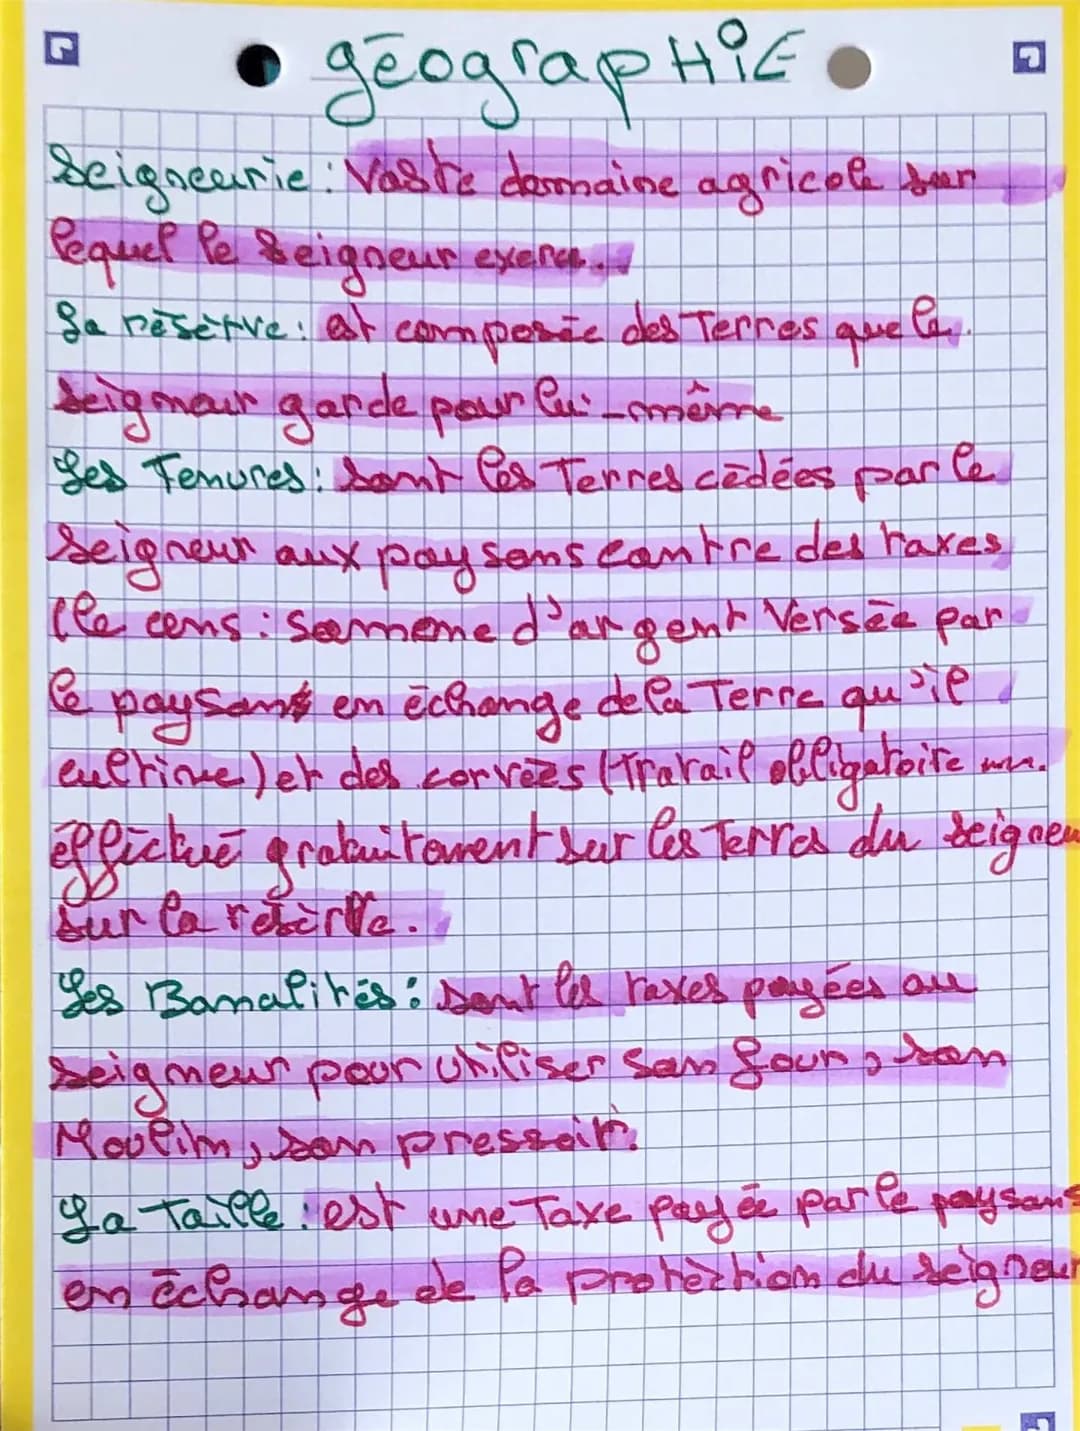 géographie
Seigneurie : Vaste domaine agricole sur
lequel le seigneur exerce.
La résèrve : est composée des Terres que le
seigneur garde pour lui-même
Les Tenures : sont les Terres cèdées par le
seigneur aux paysans contre des taxes
(le cens : somme d'argent Versée par
le paysant en échange de la Terre qu'il
cultive) et des corvées (Travail obligatoire
éffictué gratuitement sur les Terres du seigneu
sur la résèrve.
Les Banalités : sont les taxes payées au
seigneur pour utiliser son four, son
Moulin, son pressoir.
La Taille : est une Taxe payée par le paysans
en échange de la protèction du seigneur